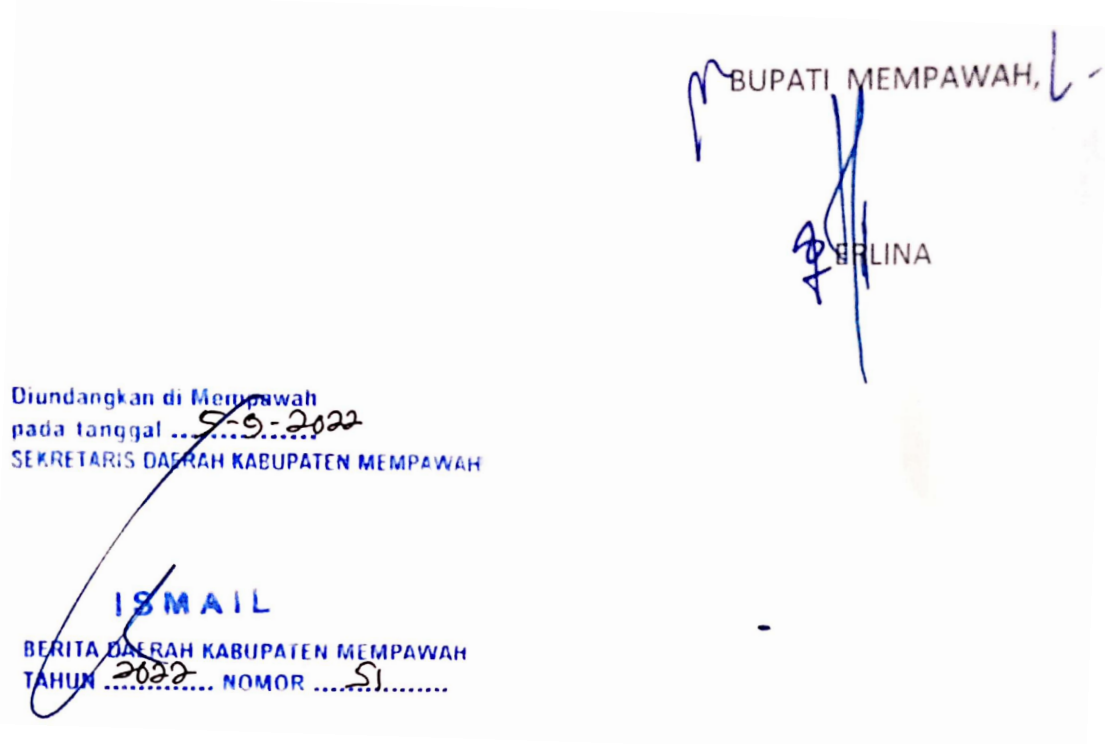 BUPATI MEMPAWAH,
ERLINA
Diundangkan di Mempawah
pada tanggal 5-9-2022
SEKRETARIS DAERAH KABUPATEN MEMPAWAH
ISMAIL
BERITA DAERAH KABUPATEN MEMPAWAH
TAHUN 2022 NOMOR 51